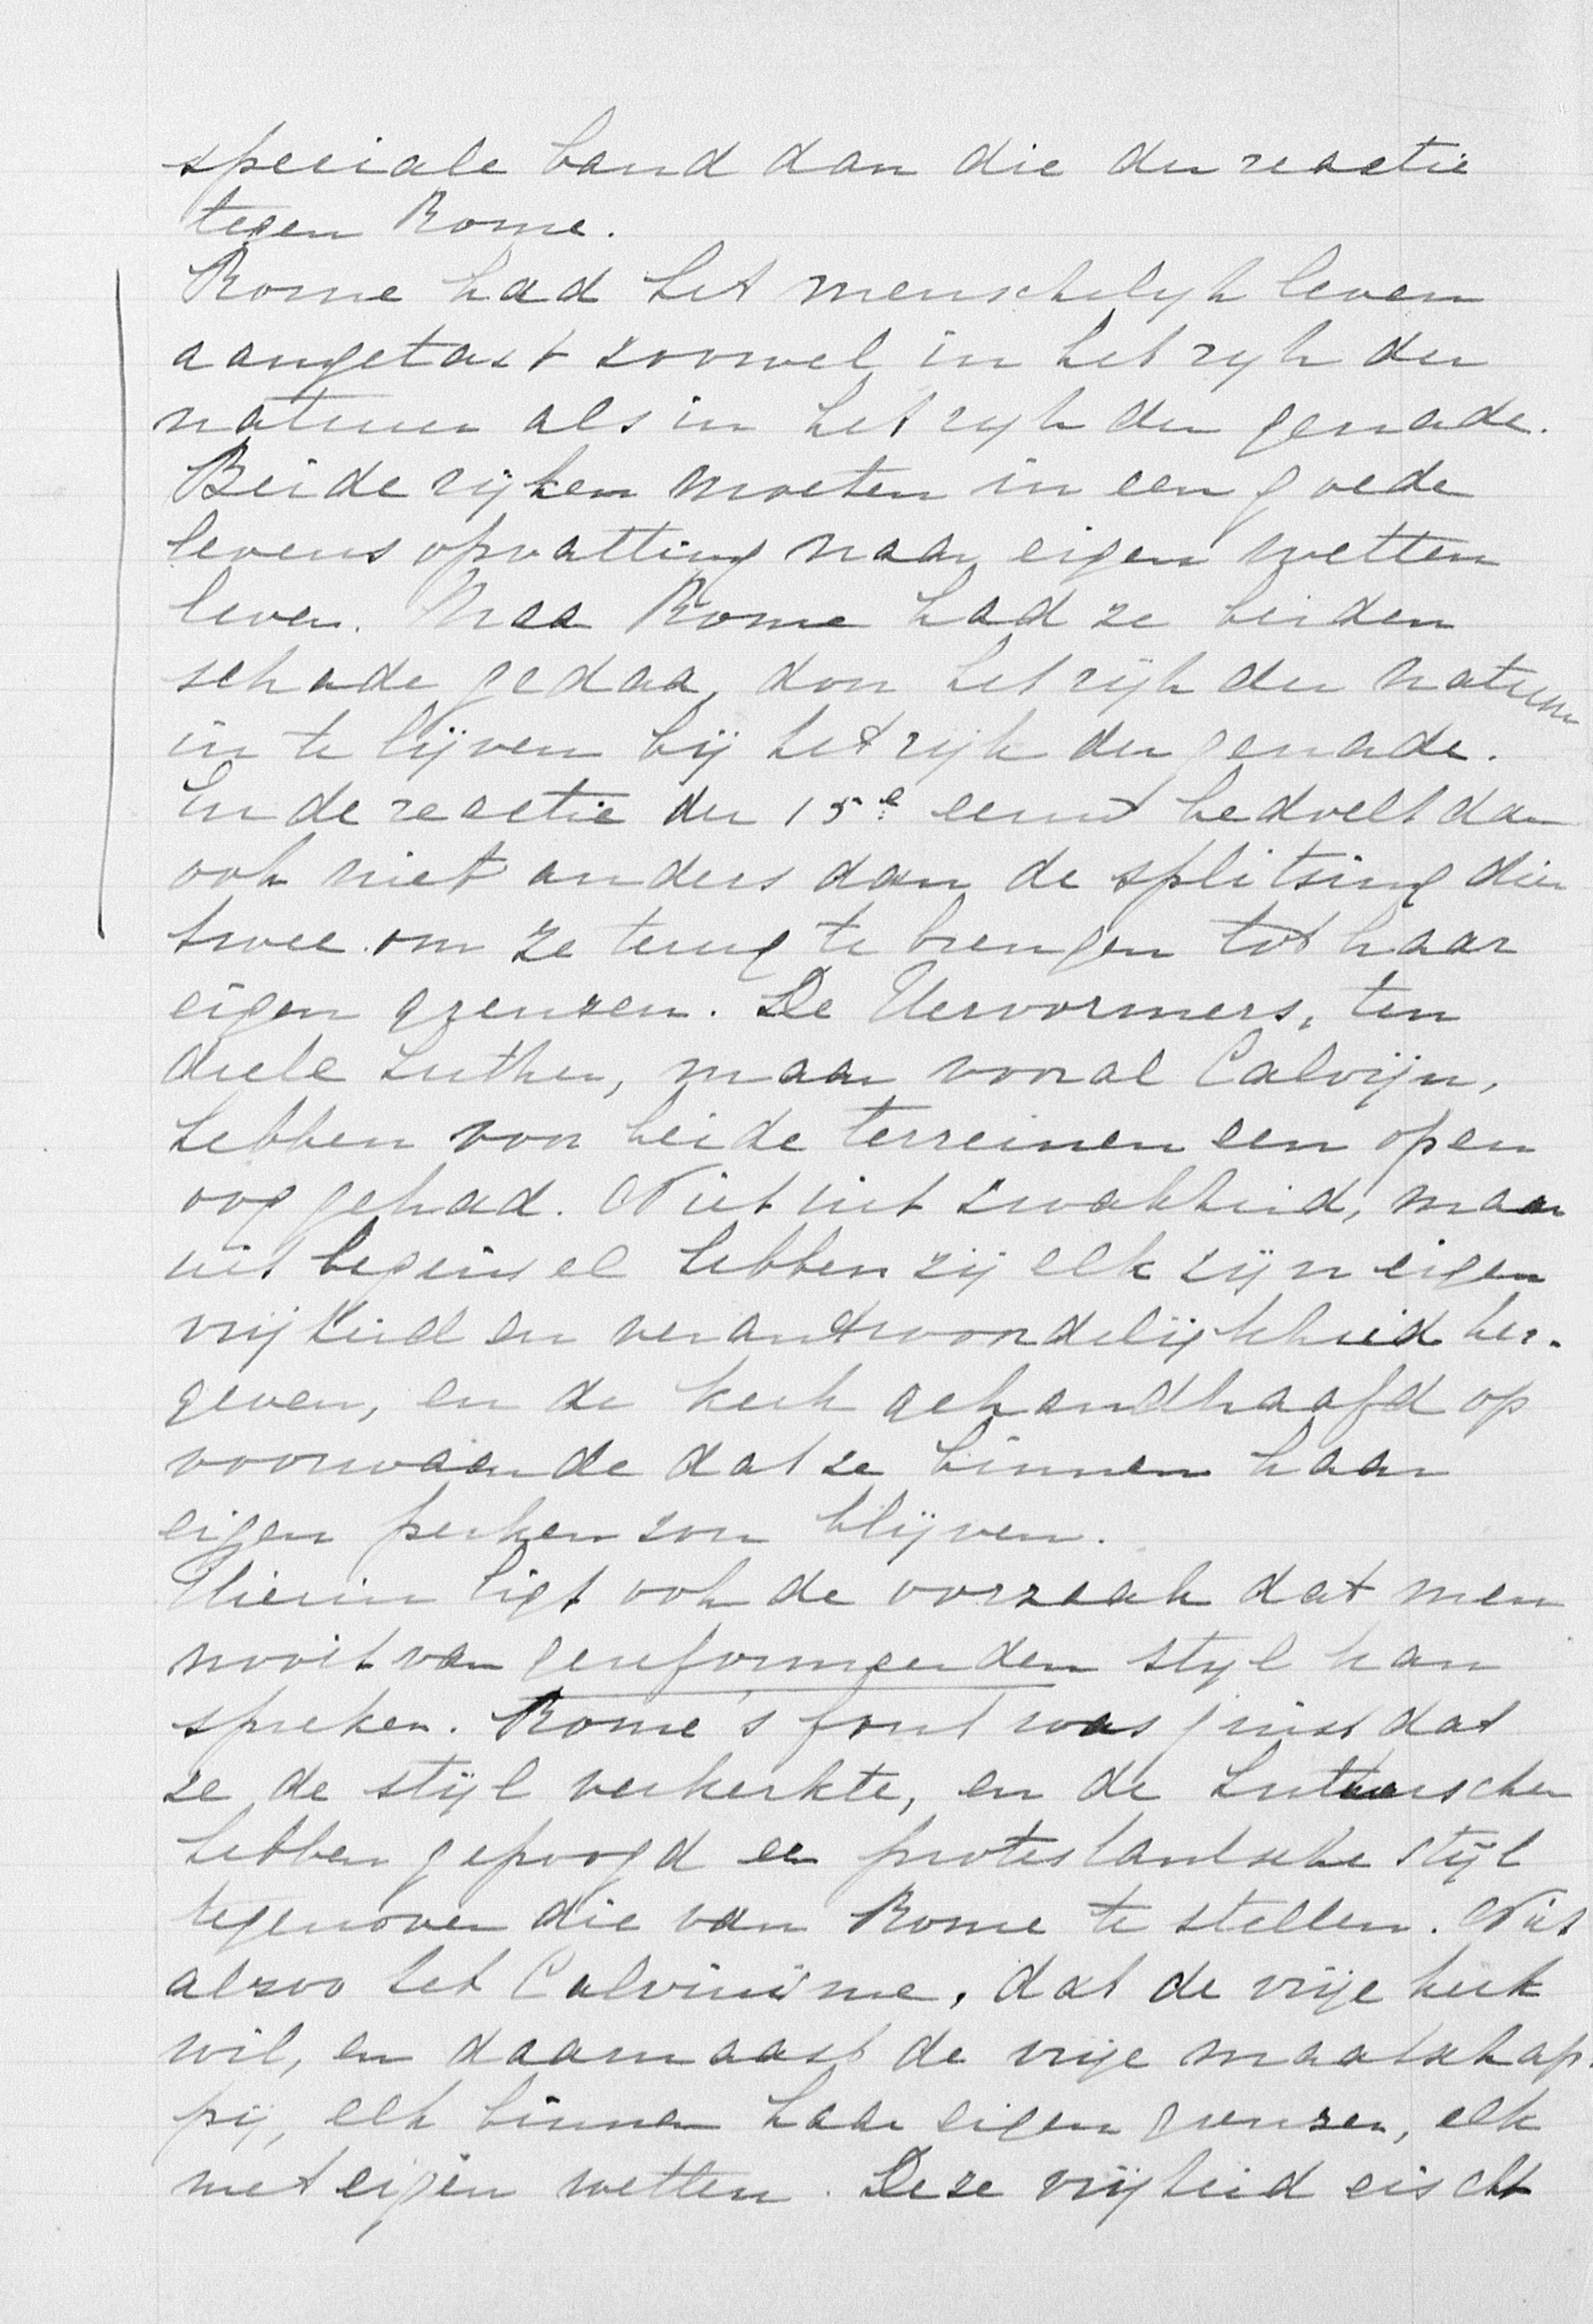 speciale band dan die der reactie
tegen Rome.
Rome had het menschelyk leven
aangetast zoowel in het ryk der
natuur als in het ryk der genade.
Beide rijken moeten in een goede
levensopvatting naar eigen wetten
leven. Maa Rome had ze beiden
schade gedaa, door het rijk der natuur
in te lijven bij het rijk der genade.
In de reactie der 15e eeuw bedoelt dan
ook niet anders dan de splitsing dier
twee om ze terug te brengen tot haar
eigen grenzen. De Hervormers, ten
deele Luther, maar vooral Calvijn,
hebben voor beide terreinen een open
oog gehad. Niet uit zwakheid, maar
uit beginsel hebben zij elk zijn eigen
vrijheid en verantwoordelijkheid her-
geven, en de kerk gehandhaafd op
voorwaarde dat ze binnen haar
eigen perken zou blijven.
Hierin ligt ook de oorzaak dat men
nooit van gereformeerden styl kan
spreken. Rome's fout was juist dat
ze de stijl verkerkte, en de Lutherschen
hebben gepoogd een protestantsche stijl
tegenover die van Rome te stellen. Niet
alzoo het Calvinisme, dat de vrije kerk
wil, en daarnaast de vrije maatschap-
pij, elk binnen haar eigen grenzen, elk
met eigen wetten. Deze vrijheid eischt